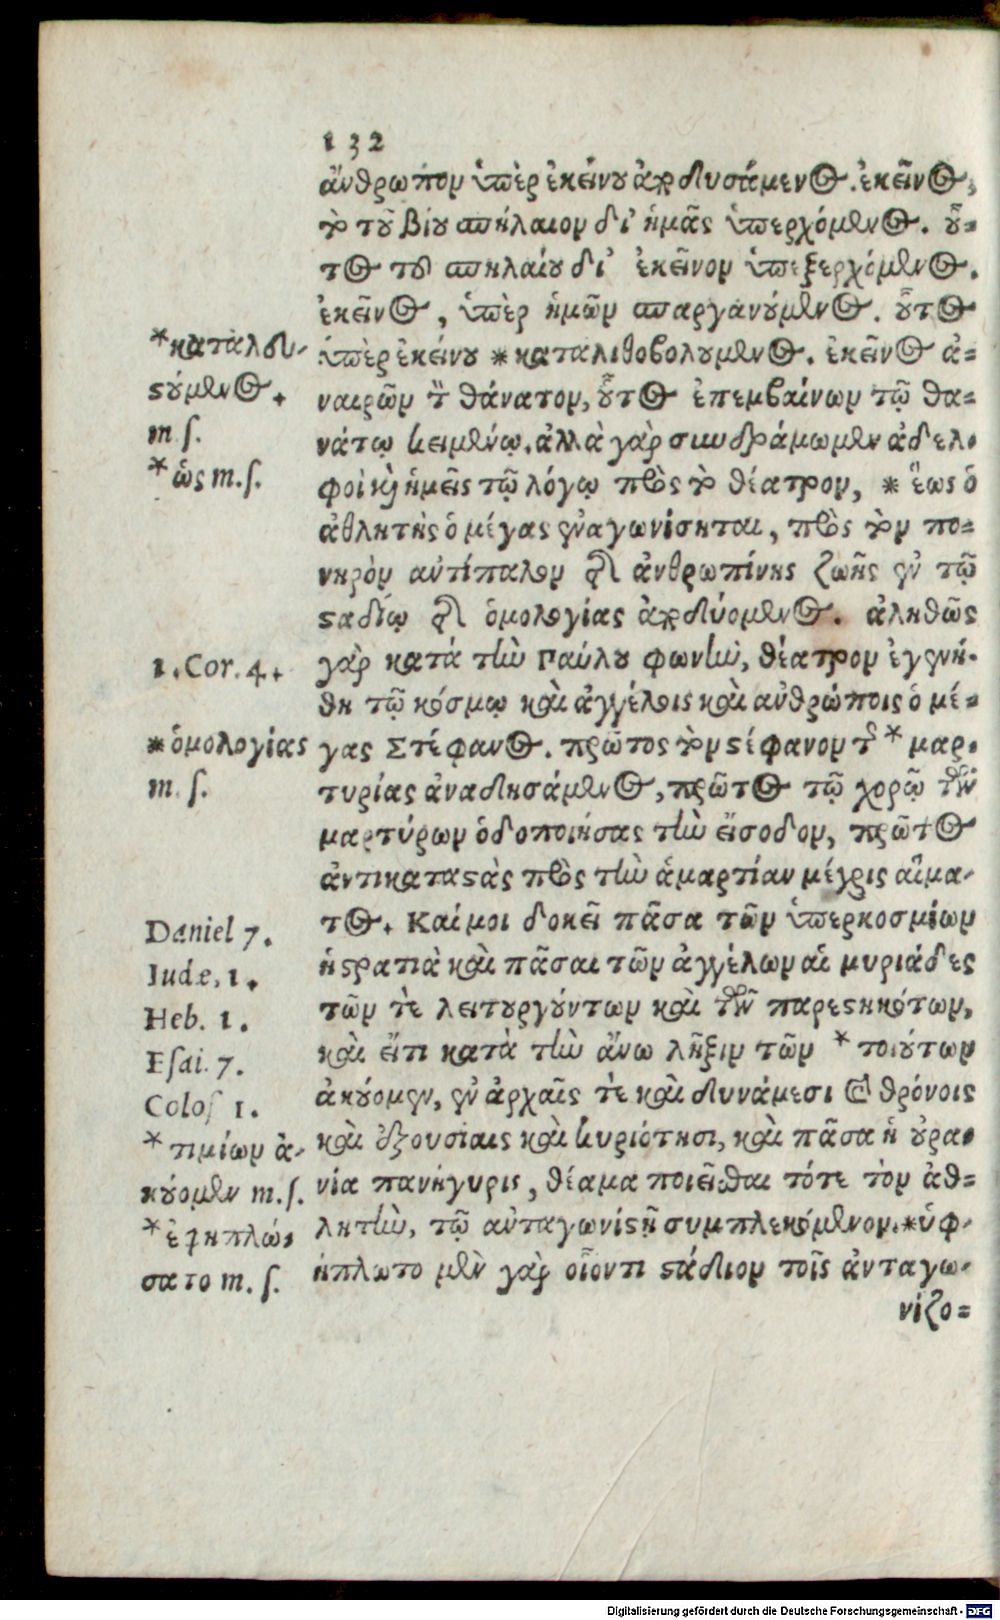 132
ἄνθρωπον ὑπὲρ ἐκείνου ἀποδυσάμενος. ἐκεῖνος,
τὸ τοῦ βίου σπήλαιον δι᾽ ἡμᾶς ὑπερχόμενος. οὗ=
τος τοῦ σπηλαίου δι᾽ ἐκεῖνον ὑπεξερχόμενος.
ἐκεῖνος, ὑπὲρ ἡμῶν σπαργανούμενος. οὗτος
ὑπὲρ ἐκείνου *καταλιθοβολουμενος. ἐκεῖνος ἀ=
ναιρῶν τὸν θάνατον, οὗτος ἐπεμβαίνων τῷ θα=
νάτῳ κειμένῳ. ἀλλὰ γὰρ συνδράμωμεν ἀδελ-
φοὶ καὶ ἡμεῖς τῷ λόγῳ πρὸς τὸ θέατρον, * ἕως ὁ
ἀθλητὴς ὁ μέγας ἐναγωνίσηται, πρὸς τὸν πο=
νηρὸν ἀντίπαλον τῆς ἀνθρωπίνης ζωῆς ἐν τῷ
σταδίῳ τῆς ὁμολογίας ἀποδυόμενος. ἀληθῶς
γὰρ κατά τὴν Παύλου φωνὴν, θέατρον ἐγενή-
θη τῷ κόσμῳ καὶ ἀγγέλοις καὶ ἀνθρώποις ὁ μέ=
γας Στέφανος. πρῶτος τὸν στέφανον τῆς * μαρ-
τυρίας ἀναδησάμενος, πρῶτος τῷ χορῷ τῶν
μαρτύρων ὁδοποιήσας τὴν εἴσοδον, πρῶτος
ἀντικαταστὰς πρὸς τὴν ἁμαρτίαν μέχρις αἵμα-
τος. Καί μοι δοκεῖ πᾶσα τῶν ὑπερκοσμίων
ἡ στρατιὰ καὶ πᾶσαι τῶν ἀγγέλων αἱ μυριάδες
τῶν τὲ λειτουργούντων καὶ τῶν παρεστηκότων,
καὶ εἴτι κατὰ τὴν ἄνω λῆξιν τῶν * τοιούτων
ἀκούομεν, ἐν ἀρχαῖς τὲ καὶ δυνάμεσι καὶ θρόνοις
καὶ ἐξουσίαις καὶ κυριότησι, καὶ πᾶσα ἡ οὐρα-
νία πανήγυρις, θέαμα ποιεῖσθαι τότε τὸν ἀθ=
λητὴν, τῷ ἀνταγωνιστῇ συμπλεκόμενον. *ὑφ-
ήπλωτο μὲν γὰρ οἷόν τι στάδιον τοῖς ἀνταγω-
νιζο=
*καταλευ-
στούμενος.
m. s.
*ὡς m. s.
1. Cor. 4.
*ὁμολογίας
m. s.
Daniel 7.
Iudæ, 1.
Heb. 1.
Esai. 7.
Colos 1.
*τιμίων ἀ-
κούομεν m. s.
*ἐφηπλώ-
σατο m. s.
Digitalisierung gefördert durch die Deutsche Forschungsgemeinschaft - DFG